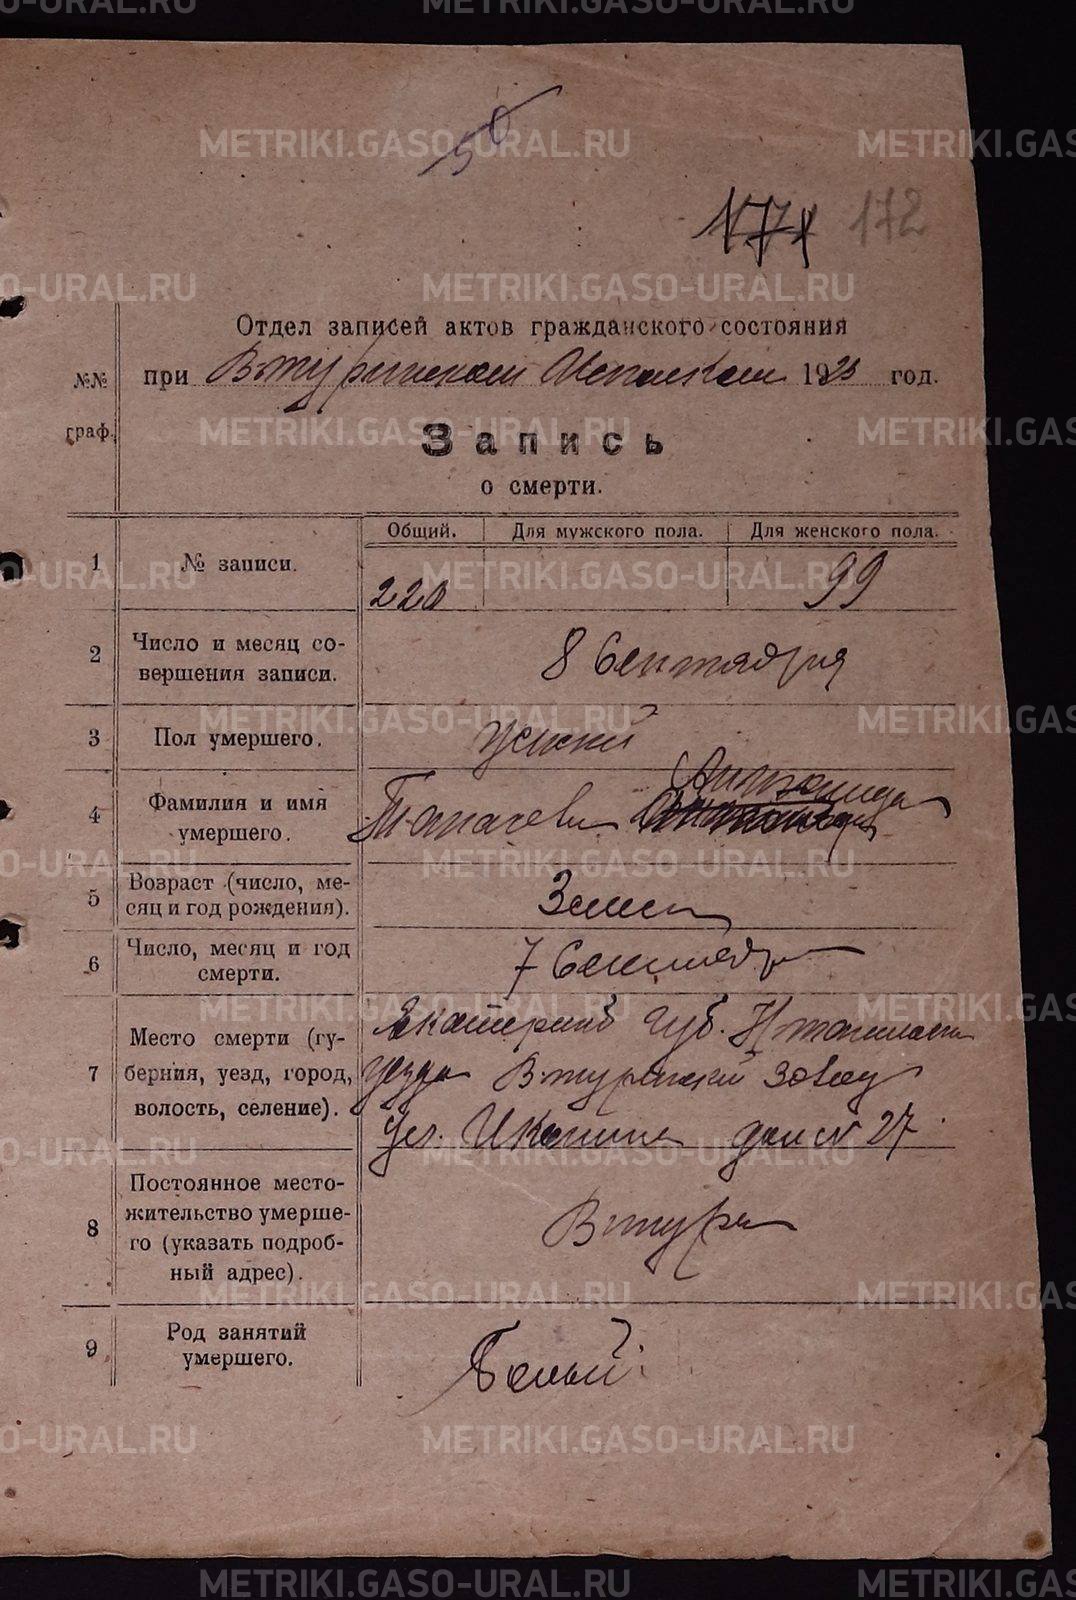 50
171 172
Отдел записей актов гражданского состояния
№№ граф.
при В-туринском 1923 год.
Запись
о смерти.
Общий. Для мужского пола. Для женского пола.
1 № записи. 220 99
2 Число и месяц со-
вершения записи. 8 Сентября
3 Пол умершего. женский
4 Фамилия и имя
умершего.
5 Возраст (число, ме-
сяц и год рождения). 3 мес
6 Число, месяц и год
смерти. 7 Сентябр
7 Место смерти (гу-
берния, уезд, город,
волость, селение).
Екатеринб губ. Н
уезда В-туринский завод
ул. дом № 27
8 Постоянное место-
жительство умерше-
го (указать подроб-
ный адрес).
В-тура
9 Род занятий
умершего.
METRIKI.GASO-URAL.RU